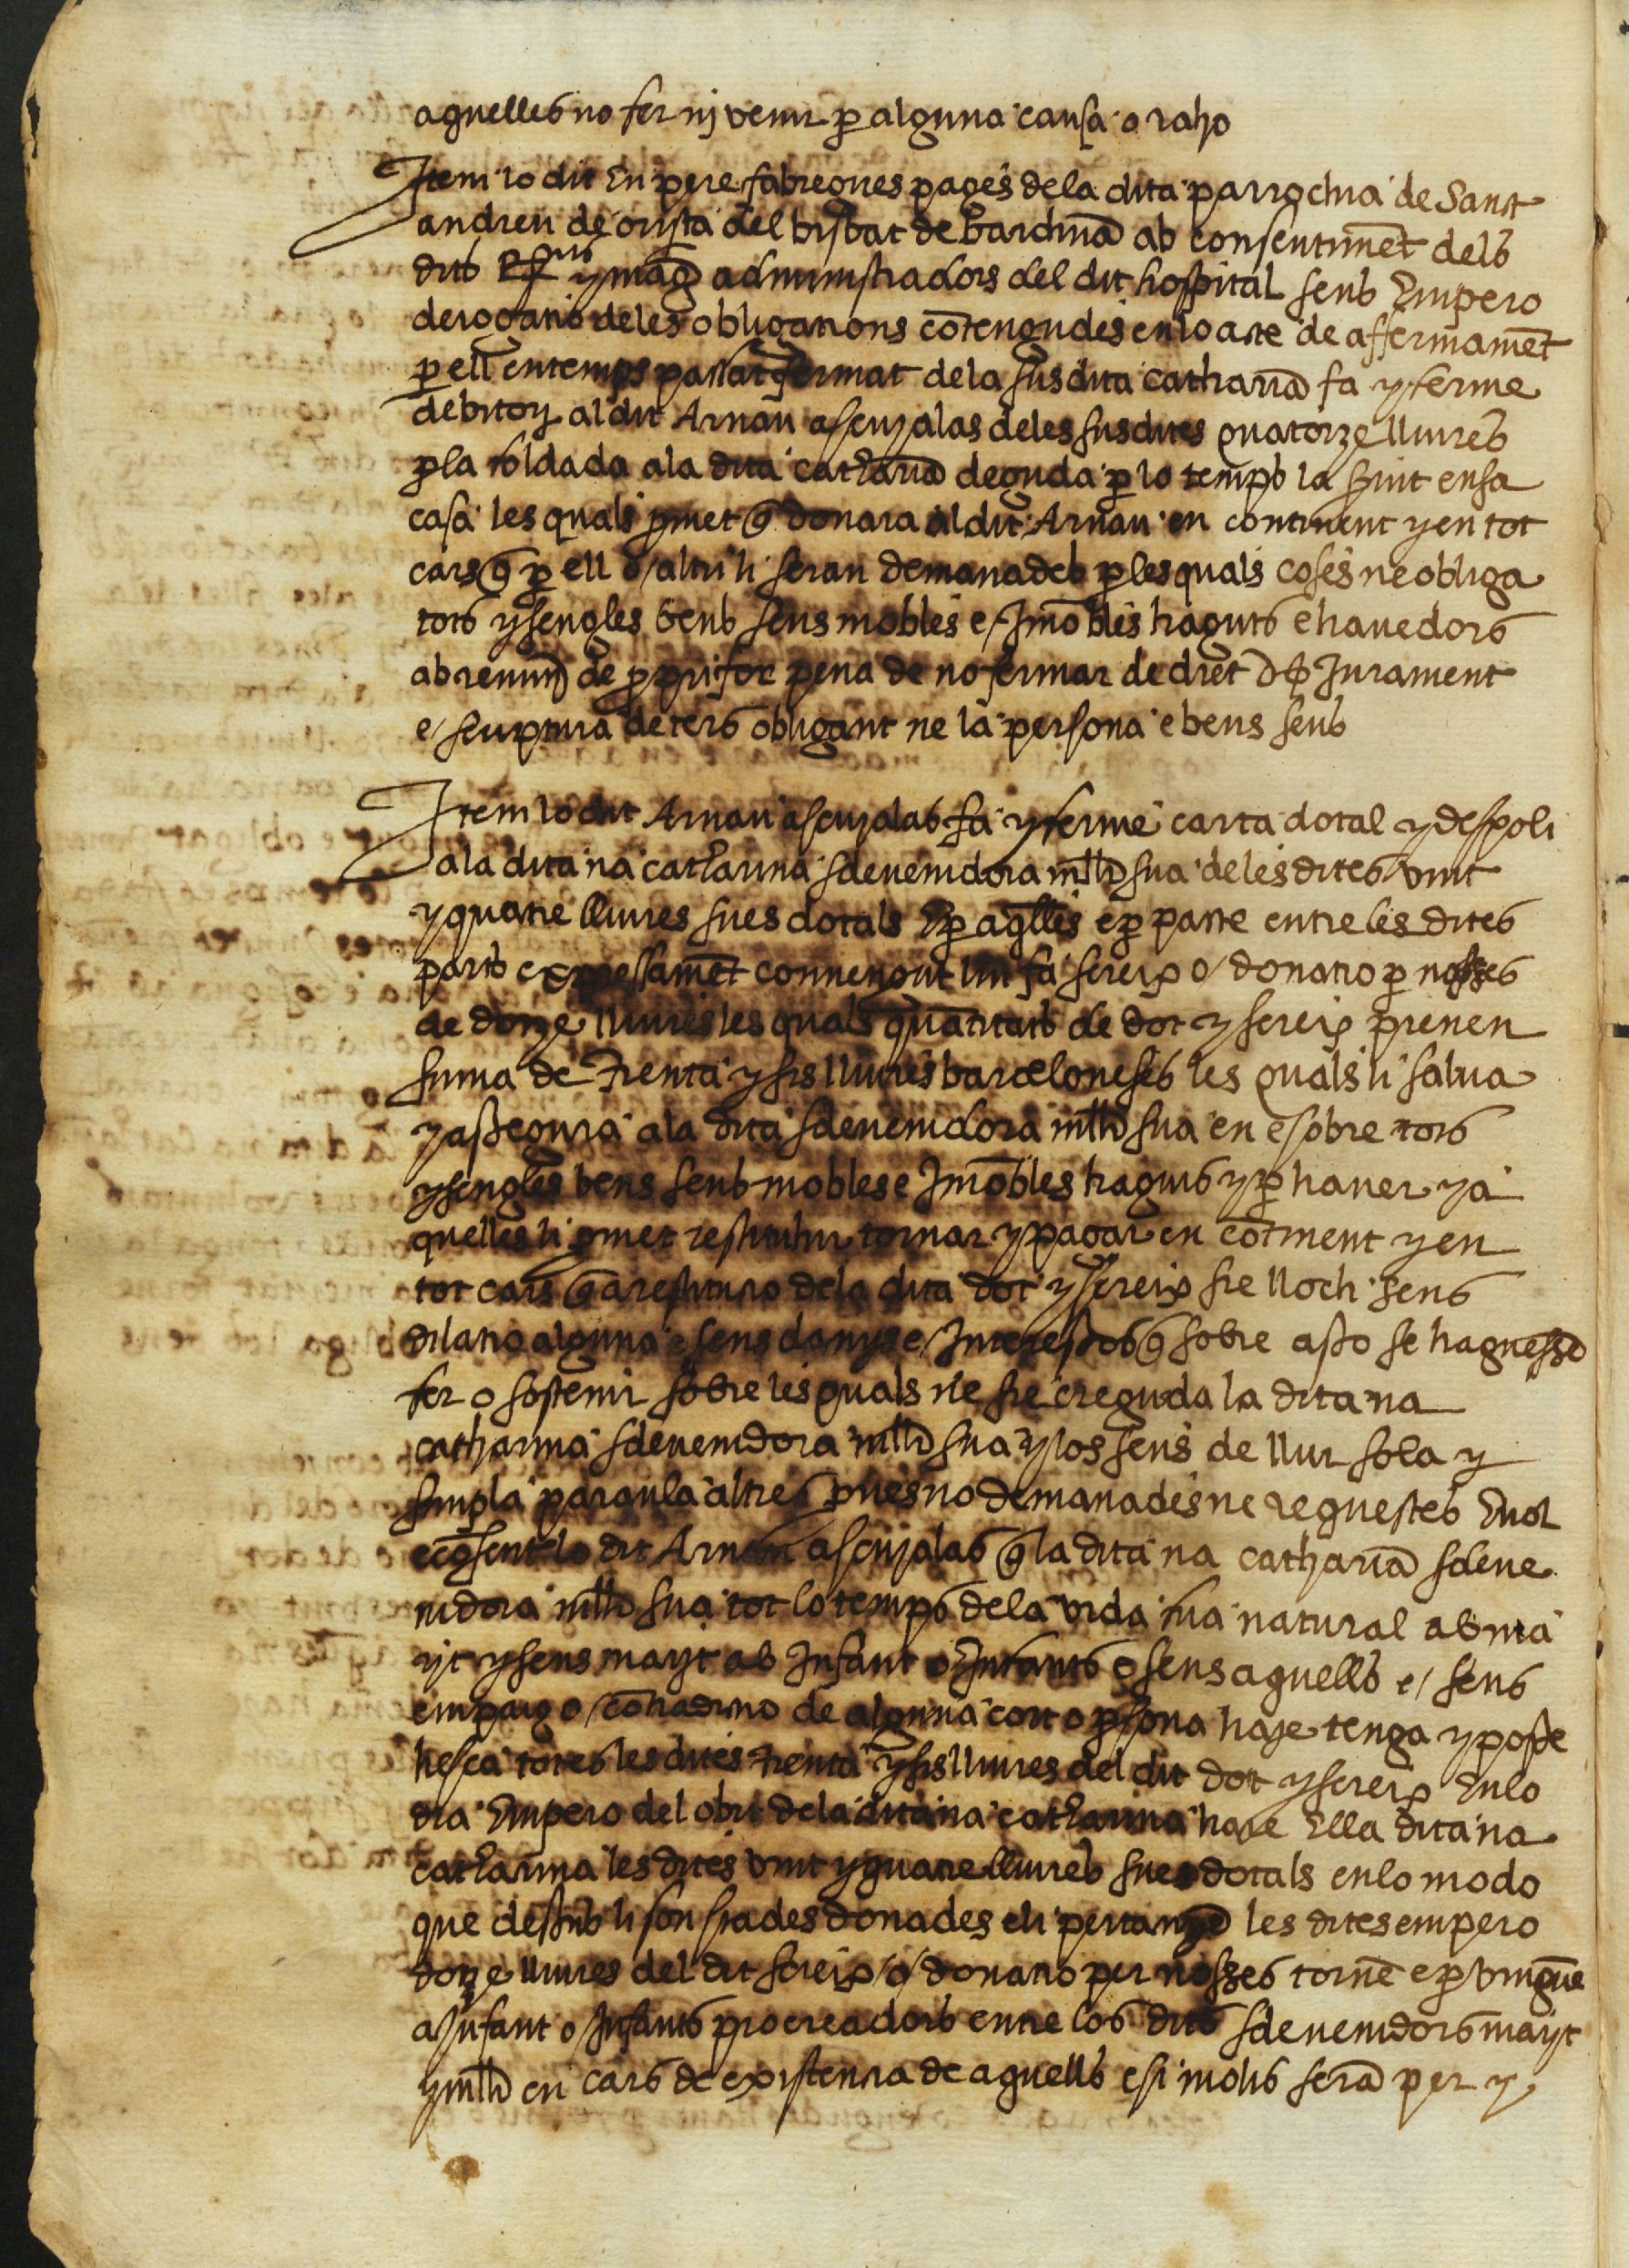 aquelles no fer nj venir p alguna causa o raho
Item lo dit En pere fabregues pages de la dita parrochia de Sanct
andreu de orista del bisbat de barchna ab consentimet dels
dits R y mag administradors del dit hospital sens Empero
derogatio deles obligations cotengudes en lo acte de affermamet
p ell en temps passat fermat de la susdita catharia fa y ferme
debitoy al dit Arnau asenjalas deles susdites quatorze lliures
p la soldada a la dita catharia deguda p lo temps la servit en sa
casa les quals pmet q donara al dit Arnau en continent y en tot
cars q p ell o altri li seran demanades p les quals coses ne obliga
tots y sengles bens seus mobles e Imobles haguts e hauedors
ab renun de ppri for pena de no fermar de dret Jurament
e scriptura de ters obligant ne la persona e bens seus
Item lo dit Arnau asenjalas fa y ferme carta dotal y despoli
a la dita na catharina sdeuenidora mllr sua de les dites vint
y quatre lliures sues dotals E p aqlles e p pacte entre les dites
parts expressamet conuengut lin fa screix o donatio p nosses
de dotze lliures les quals quatitats de dot y screix prenen
suma de Trenta y sis lliures barceloneses les quals li salua
y assegura a la dita sdeuenidora mllr sua en e sobre tots
y sengles bens seus mobles e Imobles haguts y p hauer y a
quelles li pmet restituhir tornar y pagar en cotinent y en
tot cars q a restitutio de la dita dot y screix sie lloch sens
dilatio alguna e sens danys e Interessos q sobre asso se haguesse
fer o sostenir sobre les quals ne sie creguda la dita na
catharina sdeuenidora mllr sua y los seus de llur sola y
simpla paraula altres pues no demanades ne requestes E vol
e cosent lo dit Arnau asenjalas q la dita na catharia sdeue
nidora mllr sua tot lo temps de la vida sua natural ab ma
rjt y sens marjt ab Infant o Infants o sens aquells e sens
empaig o cotradictio de alguna cort o psona haje tenga y posse
hesca totes les dites trenta y sis lliures del dit dot y screix E en lo
dia Empero del obit de la dita na catharina haje Ella dita na
catharina les dites vint y quatre lliures sues dotals en lo modo
que dessus li son stades donades e li pertanye les dites empero
dotze lliures del dit screix o donatio per nosses torne e p vingue
a Infant o Infants procreadors entre los dits sdeuenidors marjt
y mllr en cars de existentia de aquells e si molts sera per y